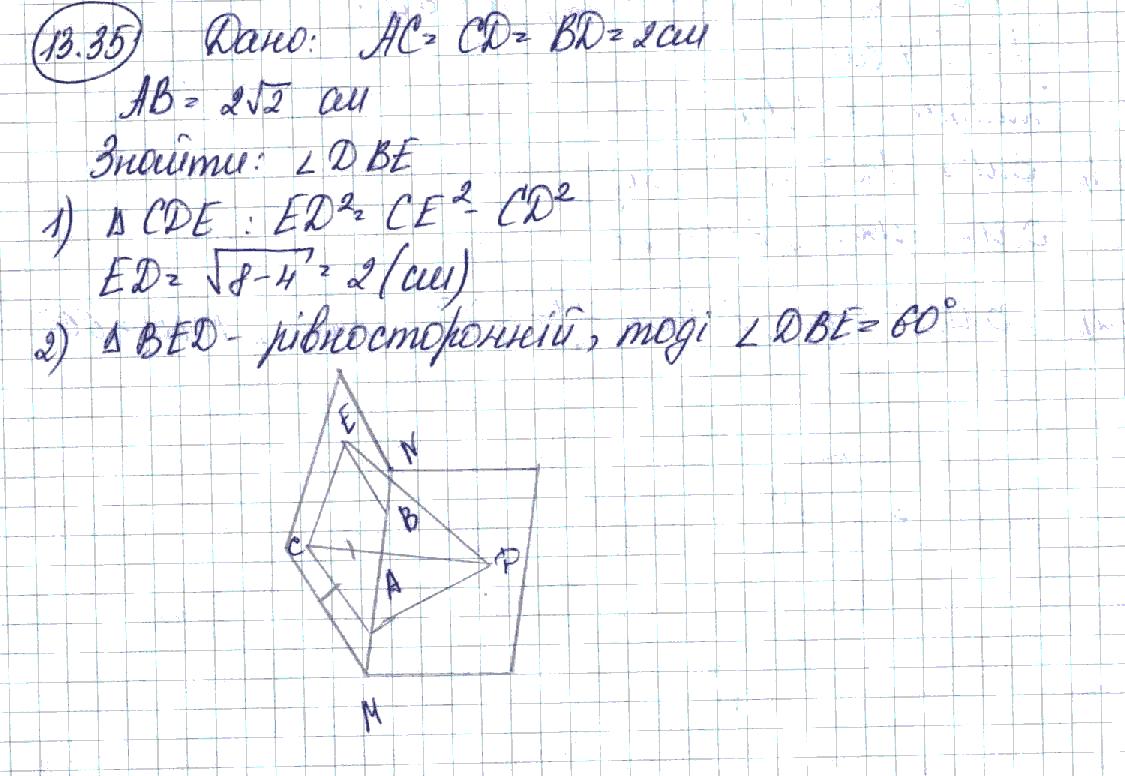 13.35 Дано: AC = CD = BD = 2 см
AB = 2√2 см
Знайти: ∠DBE
1) Δ CDE : ED² = CE² - CD²
ED = √8-4 = 2 (см)
2) Δ BED - рівносторонній, тоді ∠DBE = 60°
E
N
B
C
P
A
M